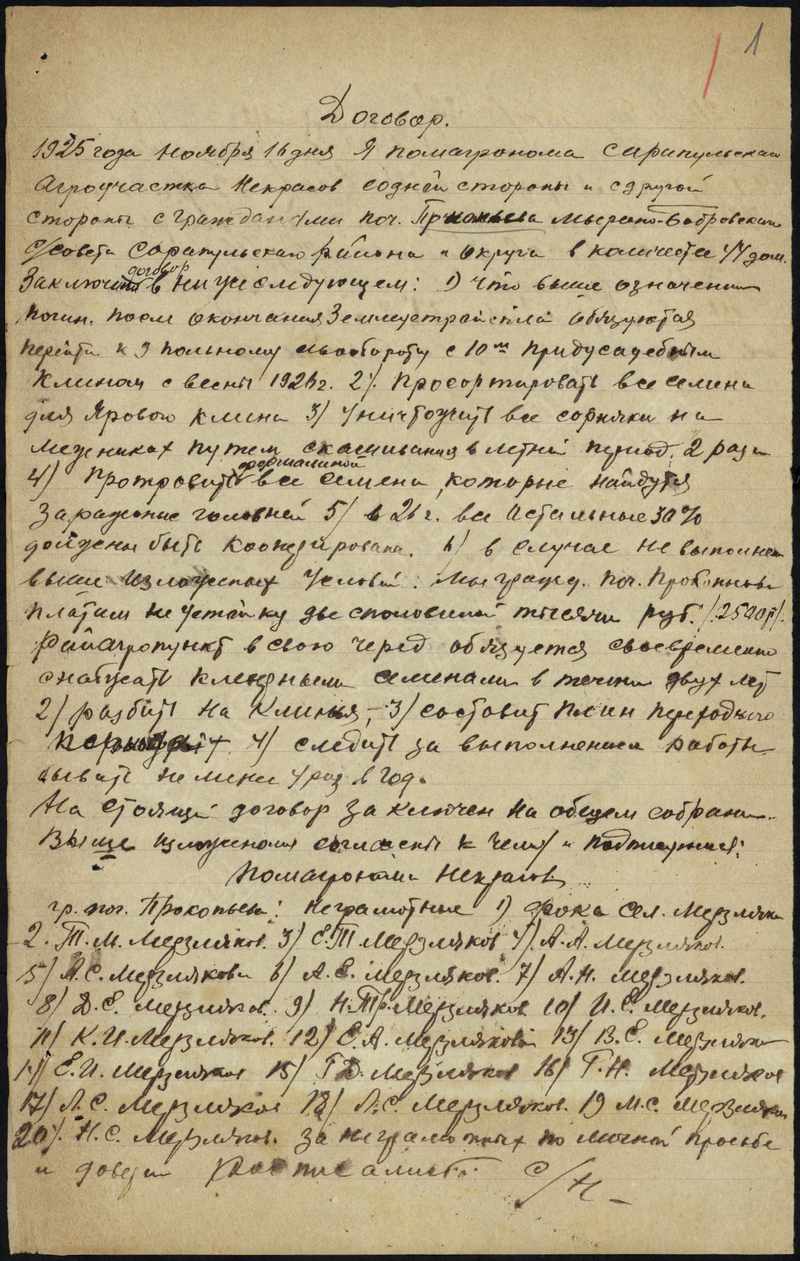 1
Договор.
1925 года ноября 16 дня Я помагронома Сарапульская
Агроучастка Некрасов содней стороны и сдругой
стороны с гражданами поч. Мысрано-Бобровскаго
с/совета Сарапульскаго района и округа в количестве 44 дом.
Заключили договор в нижеследующем: 1) что выше означении
почин. посли окончания Землеустройства обязуются
перейти к 9 польному севообороту с 10м придусадебным
клином с весны 1926 г. 2/. Просортировать все семена
для Ярового клина 3/ Уничтожить все сорняки на
межниках путем скашивания в летний период. 2 раза
4/ Протровить формалином все семена, которые найдутся
Заражение головней 5/ в 26 г. все Остальные 30%
должны быть . 6/ в случае не выполнен
выше изложеных условий: мы гражд. поч. Прокопьева
платим неустойку две споловиной тысячи руб. /.2500 р/.
Райагропункт в свою черед обязуется своевременно
снабжать семенами в течении двух лет
2/ разбить на клинья, - 3/ составит план переходного
4/ следить за выполнением работы
бывать не мение 4 раз в год.
На стоящий договор заключен на общем собрании..
Выше изложеном согласны к чему и подписуемся:
Помагронома Некрасов
гр. поч. Прокопьева: неграмотные 1) Фока Сел. Мерзляков
2. Т. М. Мерзляков. 3) Е. Т. Мерзляков 4/. А. А. Мерзляков.
5/ А. С. Мерзлякова 6) А. Е. Мерзляков. 7/ А. Н. Мерзляков.
8) Д. Е. Мерзляков. 9) Н. Тр. Мерзляков 10/ И. Е. Мерзляков.
11/ К. И. Мерзляков. 12) Е. А. Мерзлякова 13/ В. Е. Мерзляков
14/ Е. И. Мерзляков 15/ Г. Д. Мерзляков 16/ Г. Н. Мерзляков
17/ Л. С. Мерзляков 18/ Л. С. Мерзляков. 19 М. С. Мерзляков
20/. Н. С. Мерзляков. за неграмотных по личной просьбе
и довери Расписались С/Н